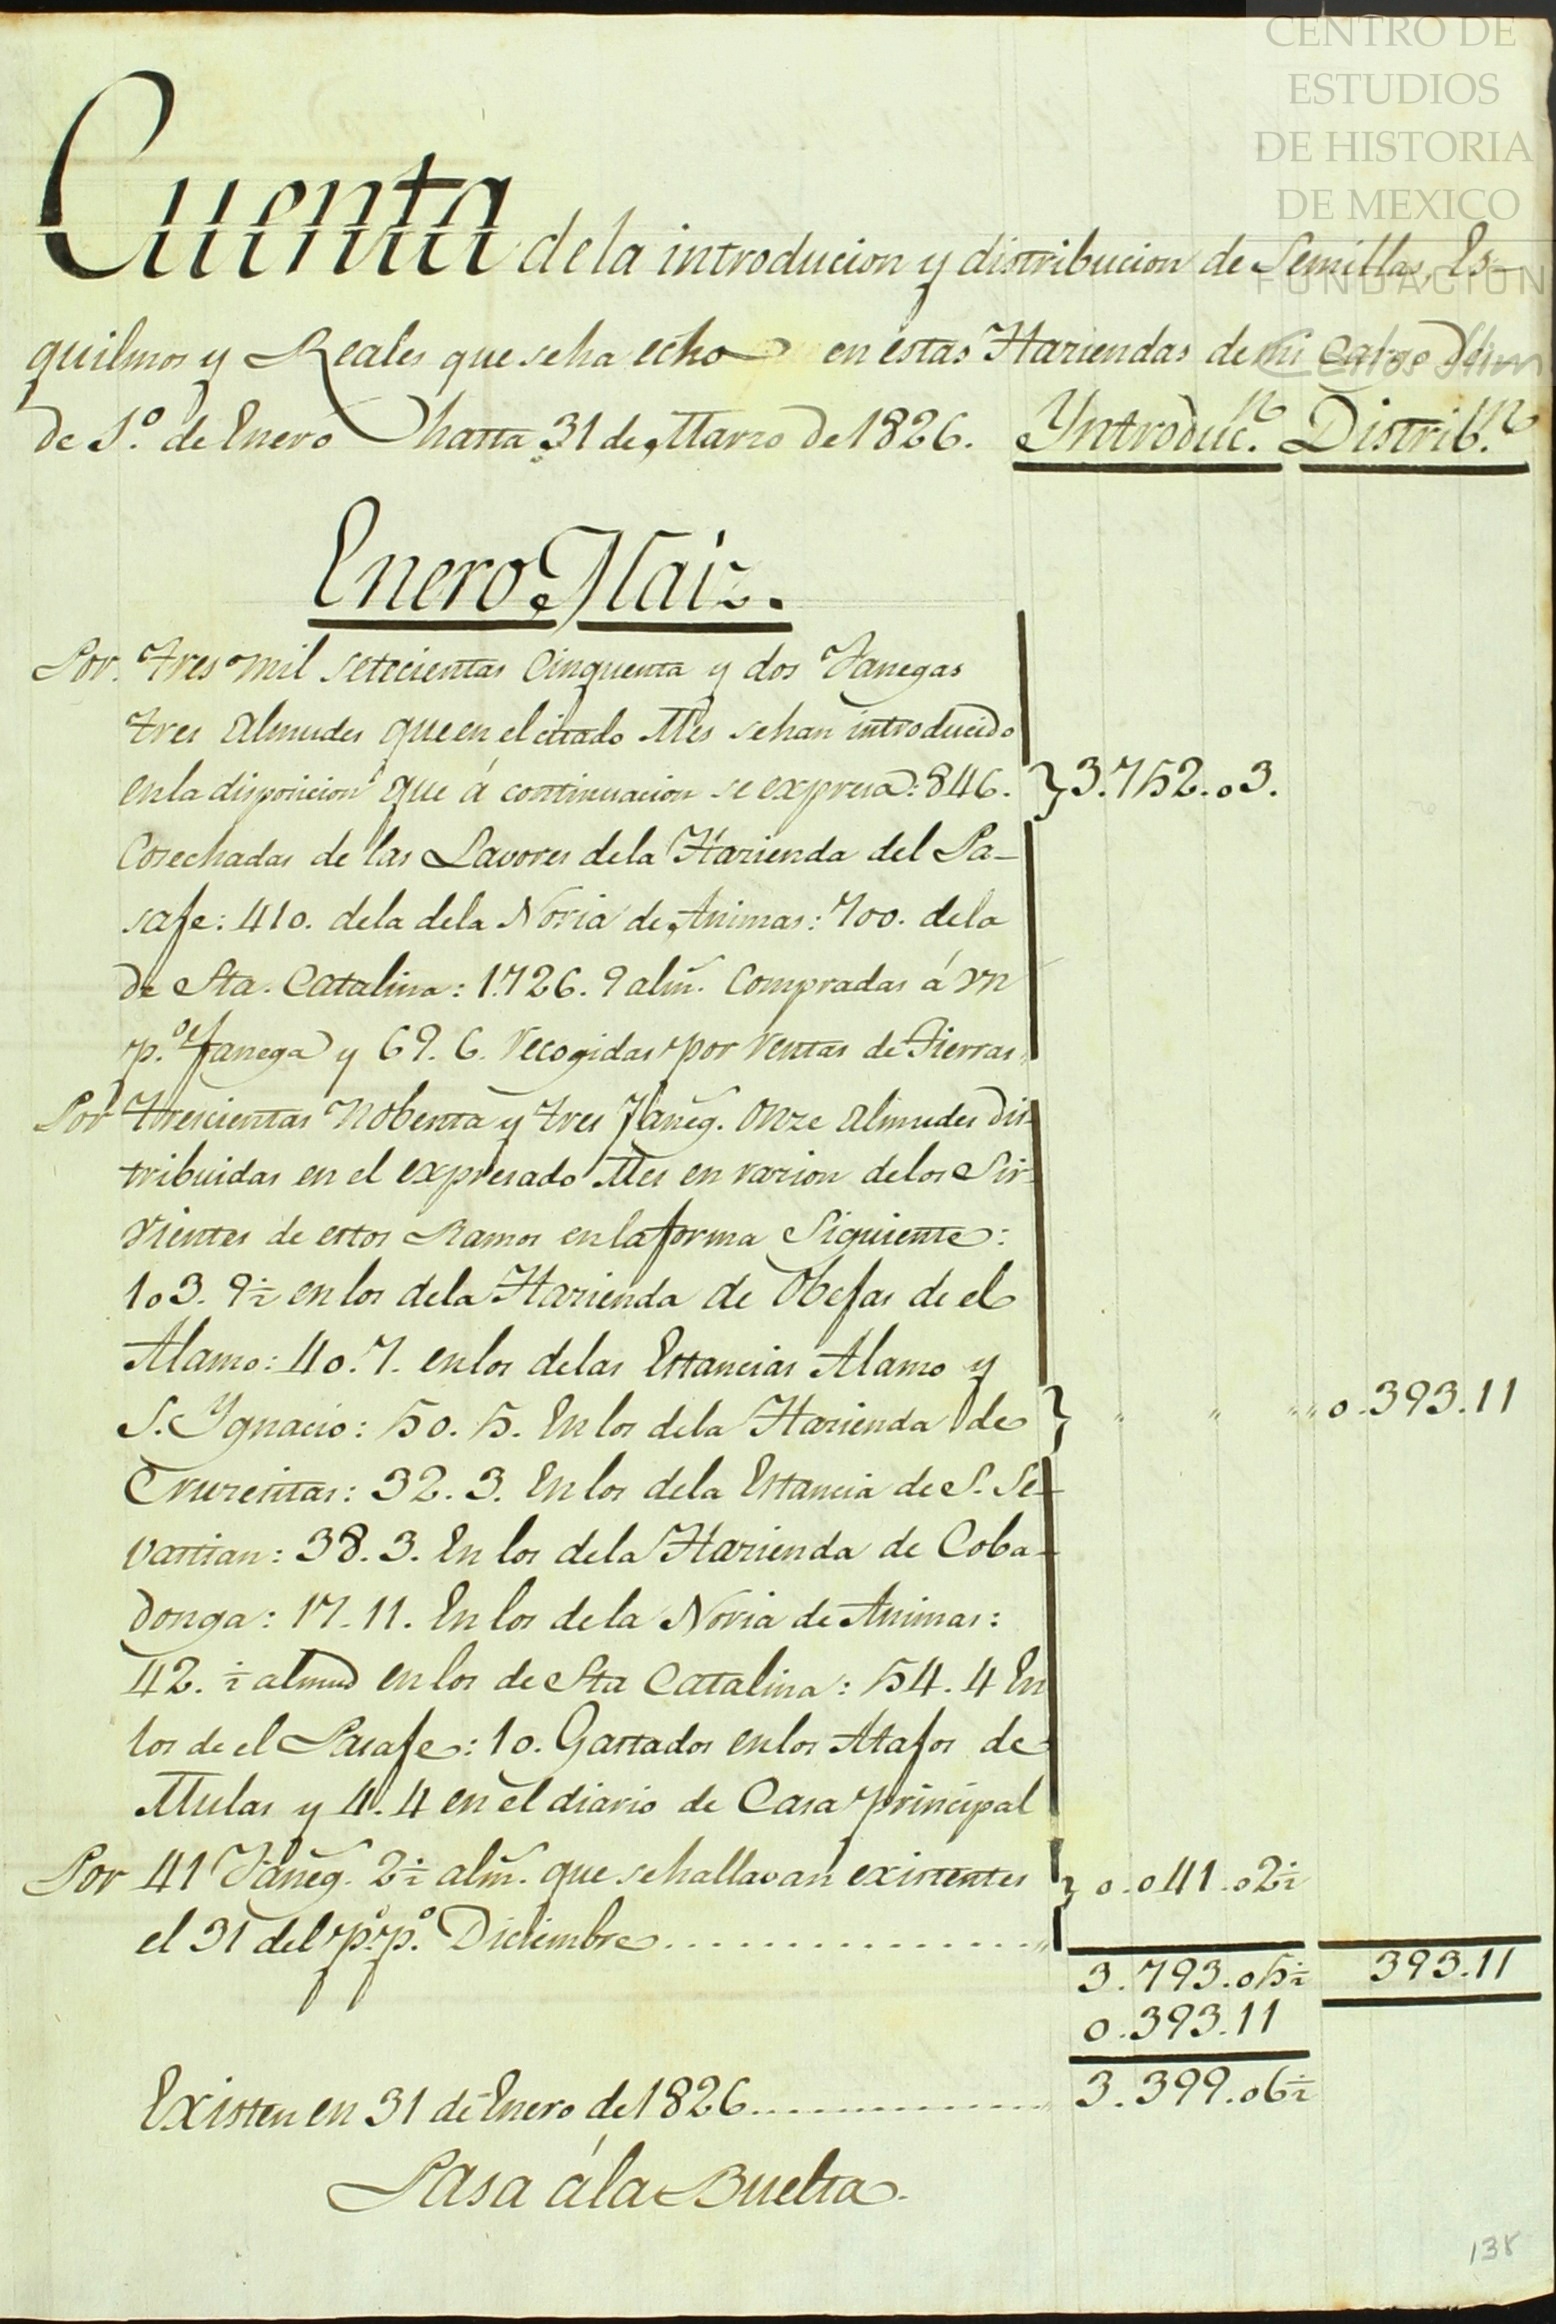 CENTRO DE
ESTUDIOS
DE HISTORIA
DE MEXICO
FUNDACION
Carlos Slim
Cuenta de la introducion y distribucion de Semillas, Es-
quilmos y Reales que se ha echo en estas Haziendas de mi Cargo des
de 1.º de Enero hasta 31 de Marzo de 1826. Yntroduc.n Distrib.n
Enero. Maiz.
Por. tres mil setecientas Cinquenta y dos Fanegas
tres Almudes que en el citado Mes se han introducido
en la disposicion que á continuacion se expresa: 846. } 3.752.03.
Cosechadas de las Lavores de la Hazienda del Pa-
saje: 410. de la de la Noria de Animas: 700. de la
de Sta. Catalina: 1.726. 9 alm̃. Compradas á un
p.º fanega y 69. 6. recogidas por Ventas de Tierras.
Por trescientas Nobenta y tres Fañeg. Onze Almudes dis-
tribuidas en el expresado Mes en razion de los Sir-
vientes de estos Ramos en la forma Siguiente:
103. 9½ en los de la Hazienda de Obejas de el
Alamo: 40.7. en los de las Estancias Alamo y
S. Ygnacio: 50. 5. En los de la Hazienda de } " " " " 0.393.11
Cruzesitas: 32. 3. En los de la Estancia de S. Se-
vastian: 38. 3. En los de la Hazienda de Coba-
donga: 17-11. En los de la Noria de Animas:
42. ½ almud en los de Sta Catalina: 54. 4 En
los de el Pasaje: 10. Gastados en los Atajos de
Mulas y 4. 4 en el diario de Casa principal
Por 41 Fañeg. 2½ alm̃. que se hallavan existentes } 0.041.02½
el 31 del p.º p.º Diciembre ................
3.793.05½ 393.11
0.393.11
Existen en 31 de Enero de 1826 ................ 3.399.06½
Pasa á la Buelta.
138